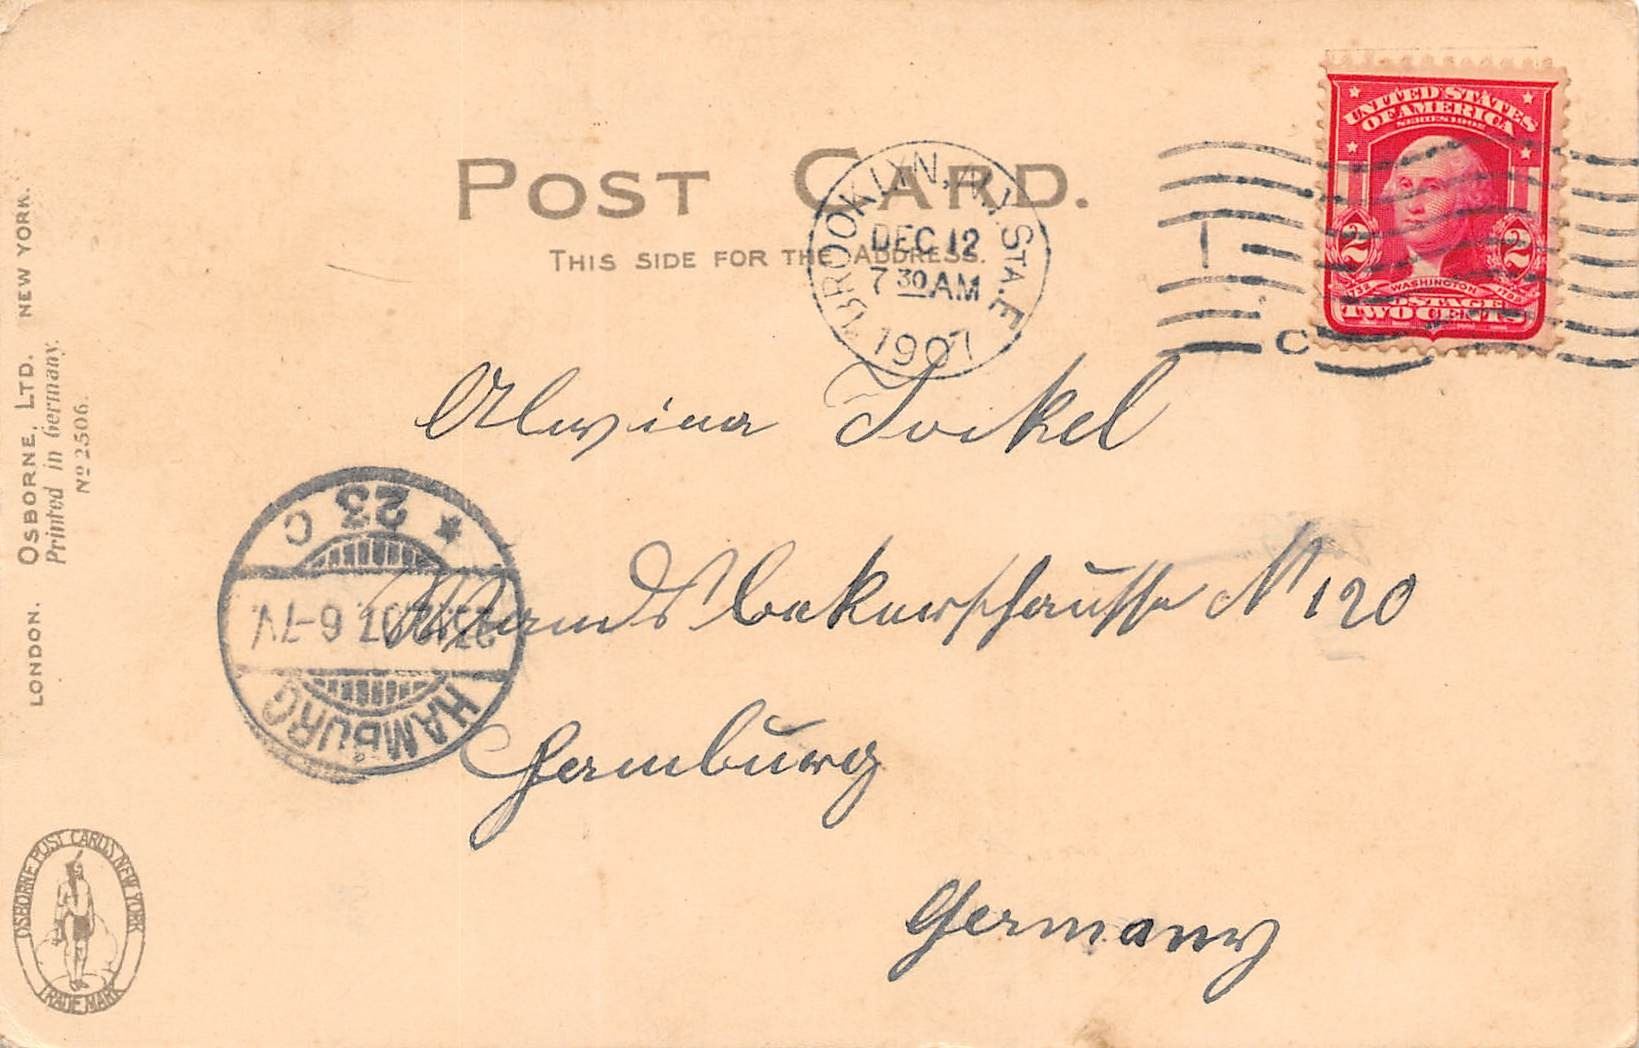 POST CARD.
THIS SIDE FOR THE ADDRESS.
BROOKLYN, N.Y. STA. E
DEC 12
7 30 AM
1907
C
UNITED STATES
OF AMERICA
SERIES 1902
2 2
1732 WASHINGTON 1799
POSTAGE
TWO CENTS
Alwina Jockel
Wandsbekerchaussee № 120
Hamburg
Germany
HAMBURG
23.12.07. 6-7 V.
* 23 C
LONDON. OSBORNE, LTD. NEW YORK.
Printed in Germany.
No 2506.
OSBORNE POST CARDS NEW YORK
TRADE MARK